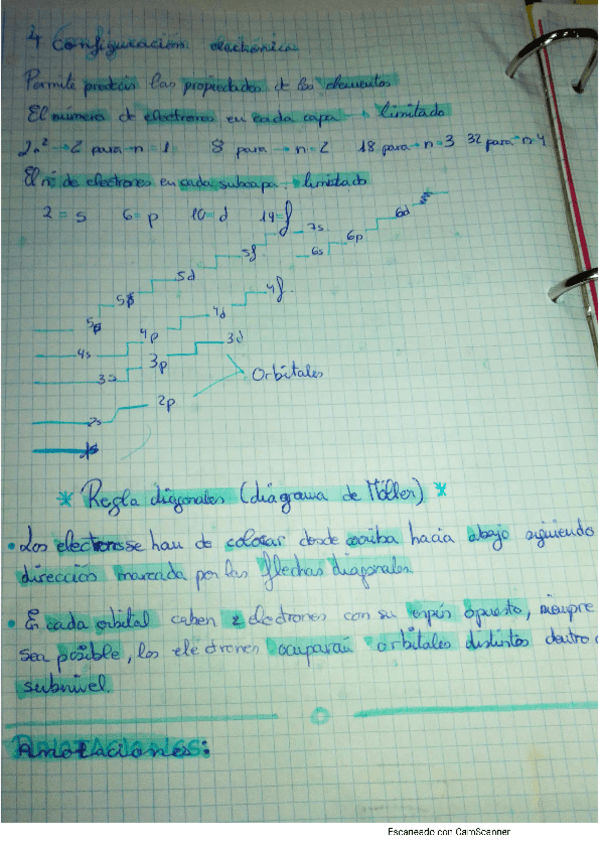 4 Configuración electrónica
Permite predecir las propiedades d los elementos
El número d electrones en cada capa → limitado
2n² → 2 para n = 1 8 para → n = 2 18 para → n = 3 32 para → n 4
El nº de electrones en cada subcapa → limitado
2 = s 6 = p 10 = d 14 = f
6d
7s 6p
5f 6s
5d
5p 4f
5s 4d
4p 3d
4s
3p
3s Orbitales
2p
2s
1s
* Regla diagonales (diagrama de Möller) *
• Los electrones se han de colocar desde arriba hacia abajo siguiendo
dirección marcada por las flechas diagonales
• En cada orbital caben 2 electrones con su espín opuesto, siempre
sea posible, los electrones ocuparán orbitales distintos dentro d
subnivel.
Anotaciones:
Escaneado con CamScanner